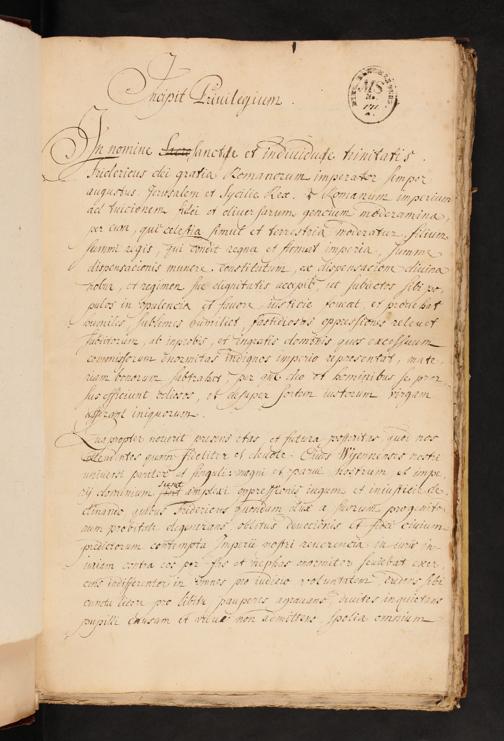 Incipit Privilegium.
MS
In nomine Sacro sanctę et individuę trinitatis.
Fridericus dei gratia Romanorum imperator semper
augustus Jerusalem et Sycilie Rex. Romanum imperium
ad tuicionem fidei et diversarum gencium moderamina,
per eum, qui celestia simul et terrestria moderatur, filium
summi regis, qui condit regna et firmat imperia, summe
dispensacionis munere, constitutum, ex dispensacione divina
nobis, et regimen sic dignitatis accepit, ut subiectos sibi po-
pulos in opulencia et favore iusticie foveat, et provehat
humiles, sublimes humiliet, fastidiosas oppressiones relevet
subiectorum, ab inprobis, et ingratis dominis quos excessuum
commissorum enormitas indignos imperio representat, mate-
riam bonorum subtrahat, per deo et hominibus se pror-
sus efficiunt odiosos, et desuper sortem iustorum virgam
iniquorum.
Quapropter noverit presens etas et futura posteritas, quod nos
attendentes quam fideliter et devote Cives Wyennenses nostri
universi pariter et singuli magni et parvi nostrum et impe-
rij dominium, sicut amplexi oppressionis iugum et iniusticie de-
clinando quibus Fridericus quondam dux a suorum progenito-
rum probitate degenerans oblitus devocionis et fidei civium
predictorum contempta Imperii nostri reverencia in iuris in-
iuriam contra eos per fas et nephas enormiter seviebat exer-
cens indifferenter in omnes pro iudicio voluntatem, credens sibi
cuncta licere pro libitu pauperes agravans, divites inquietans
pupilli causam et vidue non admittens, spolia omnium